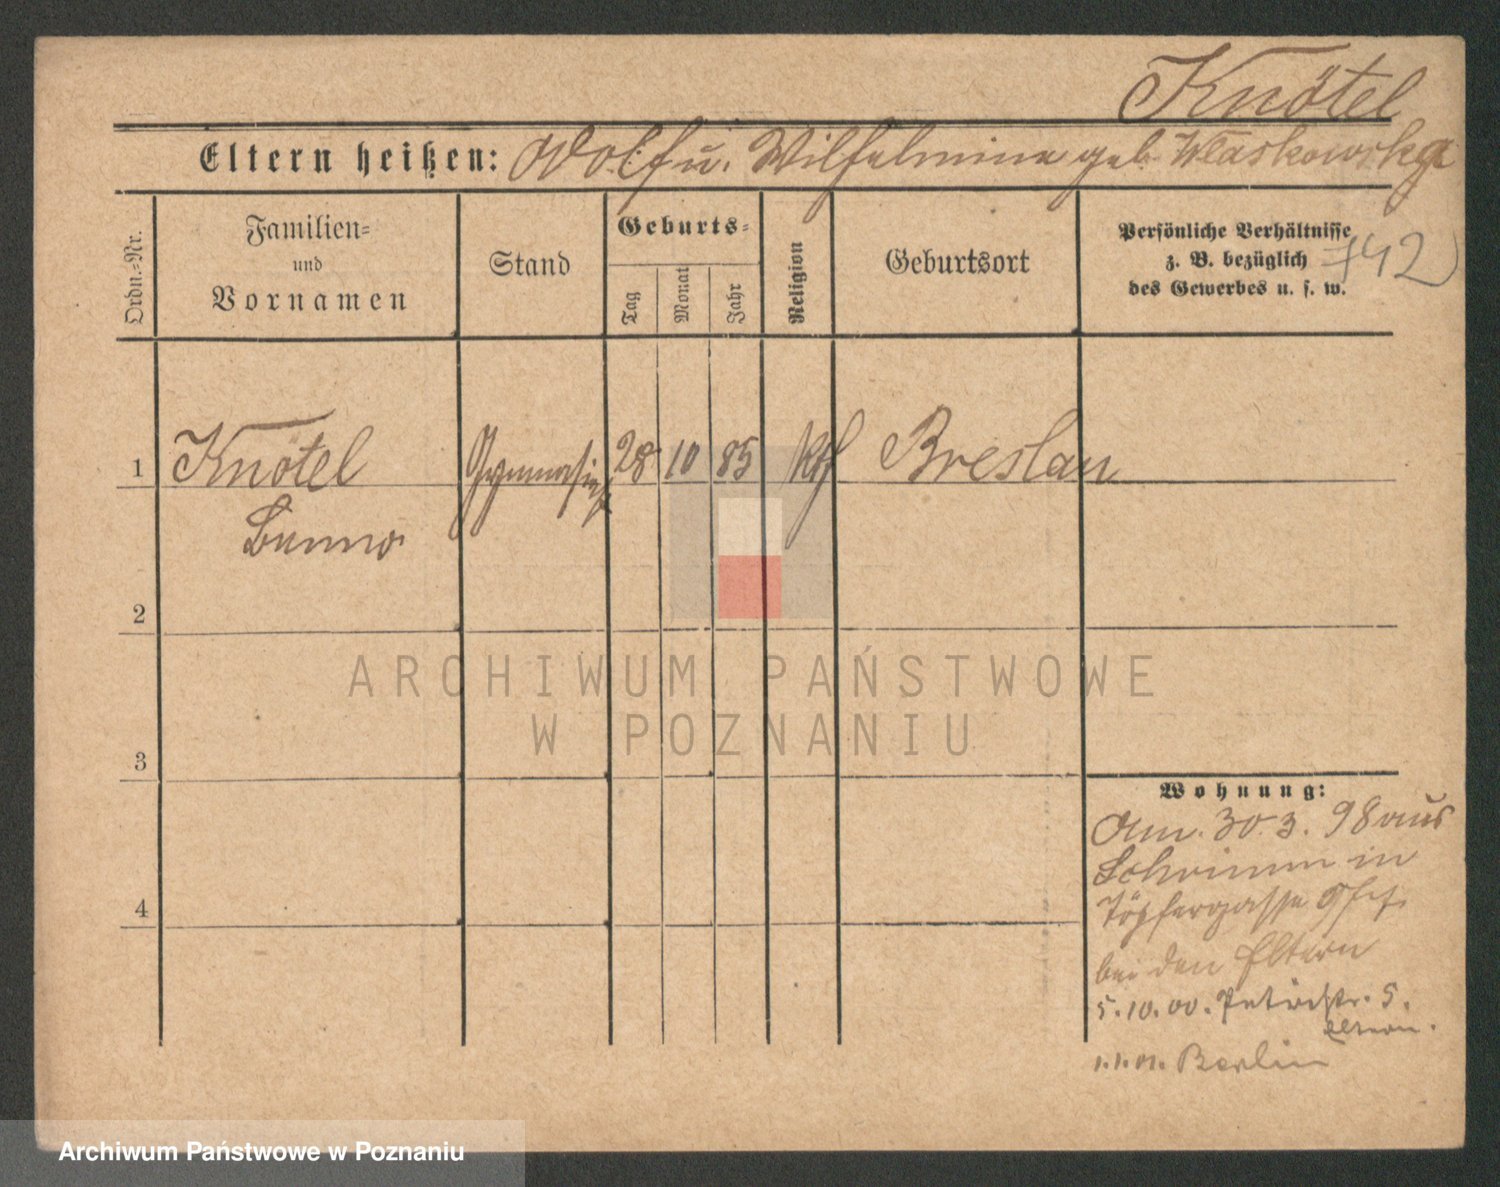 Knötel
Eltern heißen: Adolf u. Wilhelmine geb. Wlaskowska
Ordn.-Nr.
Familien-
und
Vornamen
Stand
Geburts-
Tag
Monat
Jahr
Religion
Geburtsort
Persönliche Verhältnisse
z. B. bezüglich
des Gewerbes u. s. w.
742
1 Knötel Gymnasiast 28 10 85 kth Breslau
Benno
2
3
4
Wohnung:
Am. 30.3.98 aus
Schrimm in
Töpfergasse
bei den Eltern
5.10.00. Petristr. 5.
Eltern.
1.1.01. Berlin
ARCHIWUM PAŃSTWOWE
W POZNANIU
Archiwum Państwowe w Poznaniu